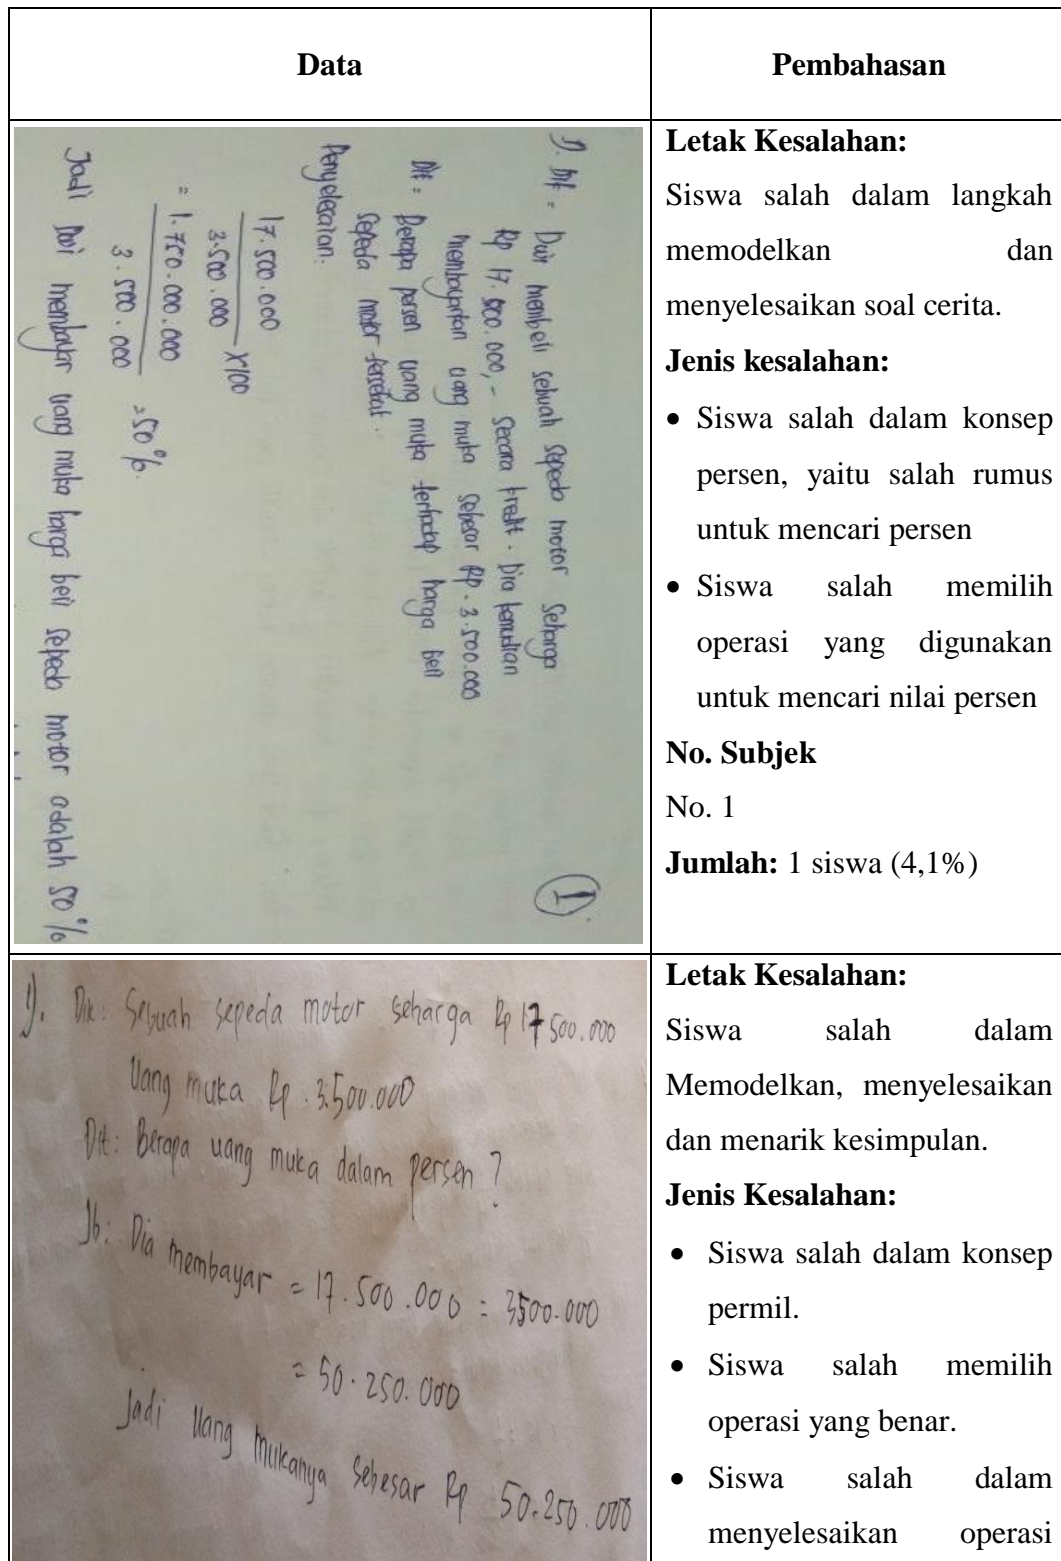 Data
Pembahasan
1). Dik = Dwi membeli sebuah sepeda motor seharga
Rp 17.500.000,- secara kredit. Dia kemudian
membayarkan uang muka sebesar Rp. 3.500.000
Dit = Berapa persen uang muka terhadap harga beli
sepeda motor tersebut.
Penyelesaian:
17.500.000
3.500.000 x100
= 1.750.000.000
3.500.000 =50%.
Jadi Dwi membayar uang muka harga beli sepeda motor adalah 50%
1
Letak Kesalahan:
Siswa salah dalam langkah
memodelkan dan
menyelesaikan soal cerita.
Jenis kesalahan:
• Siswa salah dalam konsep
persen, yaitu salah rumus
untuk mencari persen
• Siswa salah memilih
operasi yang digunakan
untuk mencari nilai persen
No. Subjek
No. 1
Jumlah: 1 siswa (4,1%)
1). Dik: Sebuah sepeda motor seharga Rp 17 500.000
Uang muka Rp. 3.500.000
Dit: Berapa uang muka dalam persen?
Jb: Dia membayar = 17.500.000 : 3500.000
= 50.250.000
Jadi uang mukanya sebesar Rp 50.250.000
Letak Kesalahan:
Siswa salah dalam
Memodelkan, menyelesaikan
dan menarik kesimpulan.
Jenis Kesalahan:
• Siswa salah dalam konsep
permil.
• Siswa salah memilih
operasi yang benar.
• Siswa salah dalam
menyelesaikan operasi